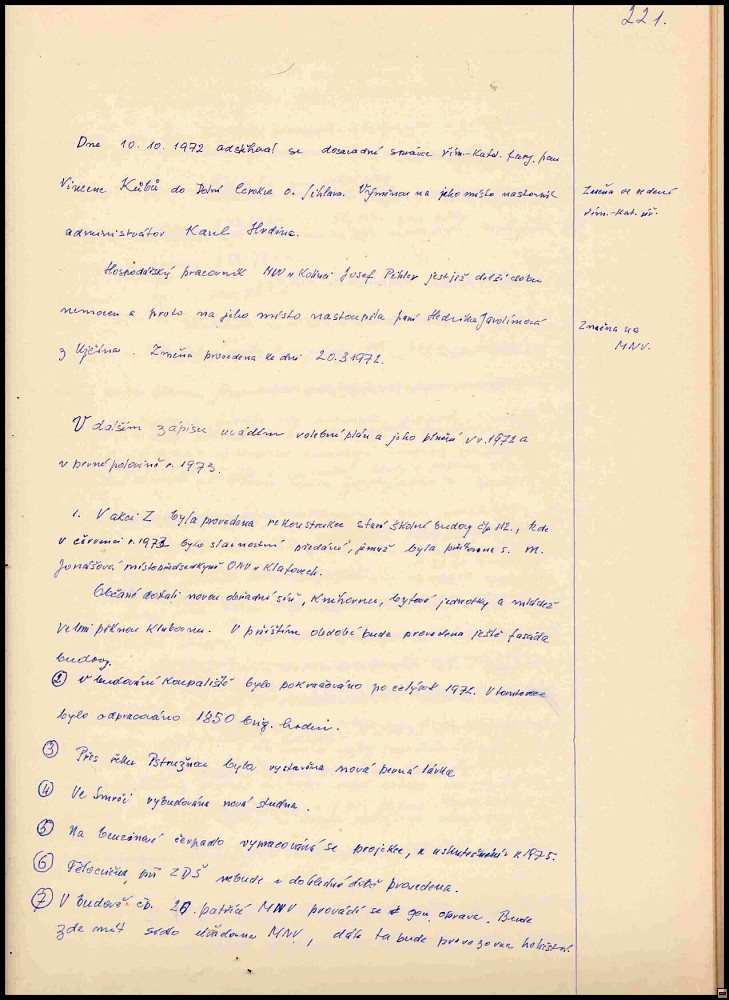 221.
Dne 10.10.1972 odstěhoval se dosavadní správce řím.-katol. fary, pan
Vincenc Kůbů do Dolní Cerekve o. Jihlava. Výměnou na jeho místo nastoupil
administrátor Karel Hrdina.
Změna ve vedení
řím.-kat. úř.
Hospodářský pracovník MNV v Kolinci Josef Pihler jest již delší dobu
nemocen a proto na jeho místo nastoupila paní Hedvika Jarolímová
z Ujčína. Změna provedena ke dni 20.3.1972.
Změna na
MNV.
V dalším zápisu uvádím volební plán a jeho plnění v r. 1972 a
v prvné polovině r. 1973.
1. V akci Z byla provedena rekonstrukce staré školní budovy čp 112., kde
v červenci r. 1972 bylo slavnostní předání, jemuž byla přítomna s. M.
Jonášová místopředsedkyně ONV v Klatovech.
Občané dostali novou obřadní síň, knihovnu, bytové jednotky a mládež
velmi pěknou klubovnu. V příštím období bude provedena ještě fasáda
budovy.
② V budování koupaliště bylo pokračováno po celý rok 1972. V tomto roce
bylo odpracováno 1850 brig. hodin.
③ Přes řeku Pstružnou byla vystavěna nová pevná lávka
④ Ve Smrčí vybudována nová studna.
⑤ Na benzínové čerpadlo vypracovává se projekce, k uskutečnění v r. 1975.
⑥ Tělocvična při ZDŠ nebude v dohledné době provedena.
⑦ V budově čp. 28. patřící MNV provádí se gen. oprava. Bude
zde mít sídlo úřadovna MNV, dále tu bude provozovna holičství.